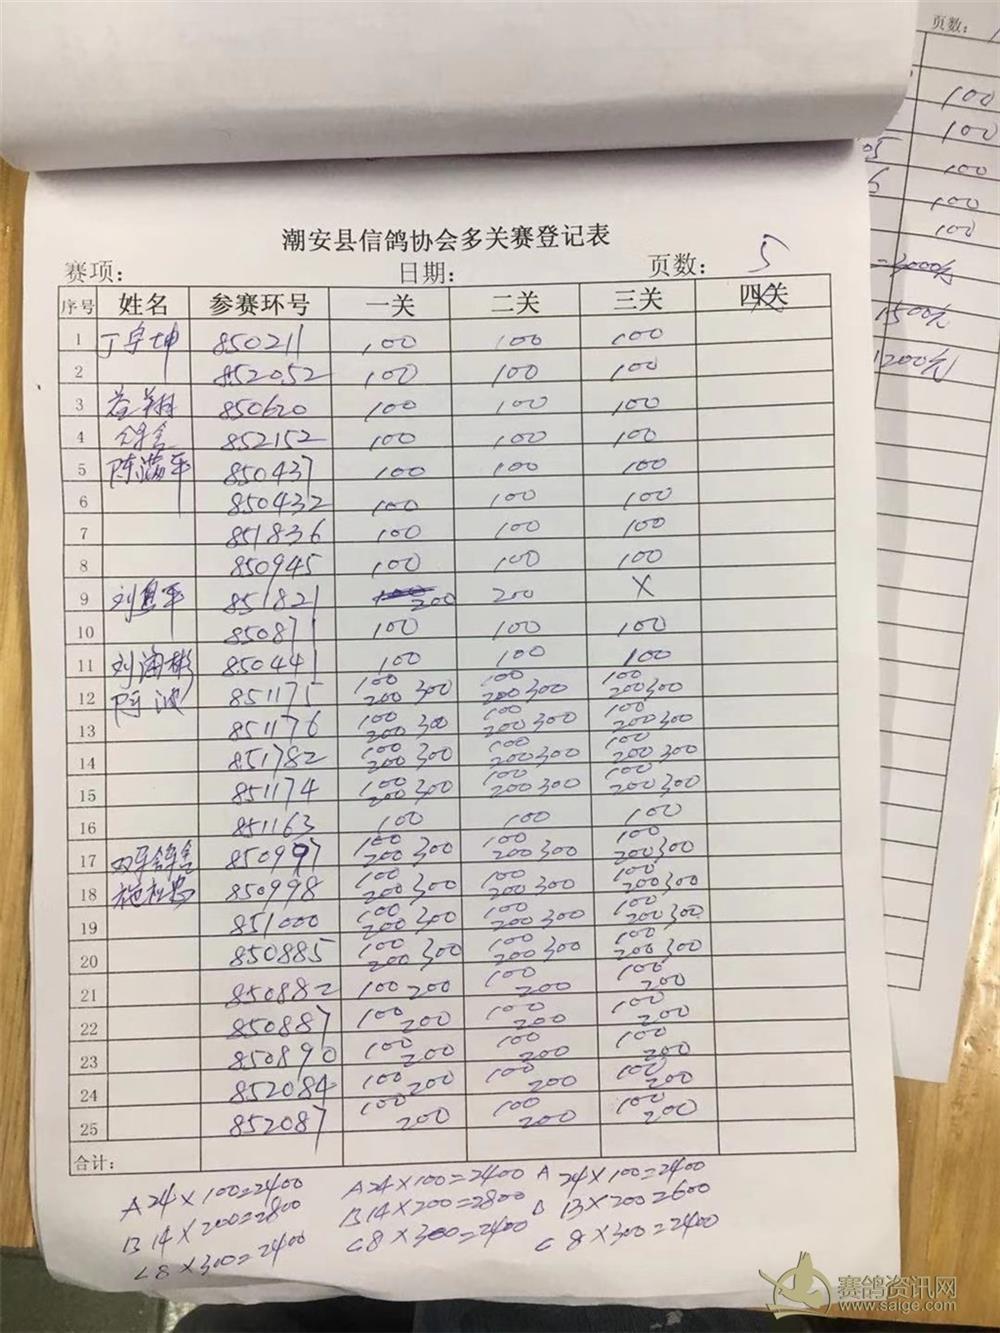 潮安县信鸽协会多关赛登记表
赛项: 日期: 页数: 5
序号 姓名 参赛环号 一关 二关 三关 四关
1 丁宇坤 850211 100 100 100
2 852052 100 100 100
3 翔 850620 100 100 100
4 852152 100 100 100
5 陈满平 850437 100 100 100
6 850432 100 100 100
7 851836 100 100 100
8 850945 100 100 100
9 刘 平 851821 200 200 X
10 850871 100 100 100
11 刘 彬 850441 100 100 100
12 陈波 851175 100 200 300 100 200 300 100 200 300
13 851176 100 200 300 100 200 300 100 200 300
14 851782 100 200 300 100 200 300 100 200 300
15 851174 100 200 300 100 200 300 100 200 300
16 851163 100 100 100
17 850997 100 200 300 100 200 300 100 200 300
18 850998 100 200 300 100 200 300 100 200 300
19 851000 100 200 300 100 200 300 100 200 300
20 850885 100 200 300 100 200 300 100 200 300
21 850882 100 200 100 200 100 200
22 850887 100 200 100 200 100 200
23 850890 100 200 100 200 100 200
24 852084 100 200 100 200 100 200
25 852087 100 200 100 200 100 200
合计:
A 24×100=2400 A 24×100=2400 A 24×100=2400
B 14×200=2800 B 14×200=2800 B 13×200=2600
C 8×300=2400 C 8×300=2400 C 8×300=2400
页数:
100
100
05 100
6 100
100
3000元
1500元
1200元
赛鸽资讯网
www.saige.com